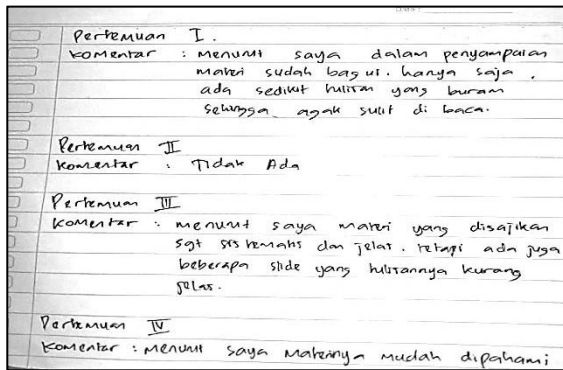 Pertemuan I.
Komentar : menurut saya dalam penyampaian
materi sudah bagus. hanya saja,
ada sedikit tulisan yang buram
sehingga agak sulit di baca.
Pertemuan II
Komentar : Tidak Ada
Pertemuan III
Komentar : menurut saya materi yang disajikan
sgt sistematis dan jelas. tetapi ada juga
beberapa slide yang tulisannya kurang
jelas.
Pertemuan IV
Komentar : menurut saya materinya mudah dipahami